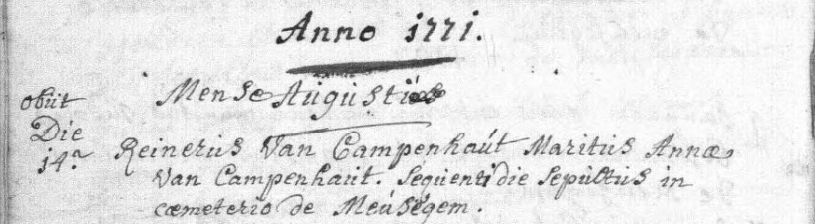 Anno 1771.
Mense Augusti
obiit
Die
14.a
Reinerus Van Campenhaut Maritus Annæ
Van Campenhaut. Sequenti die Sepultus in
cæmeterio de Meusegem.